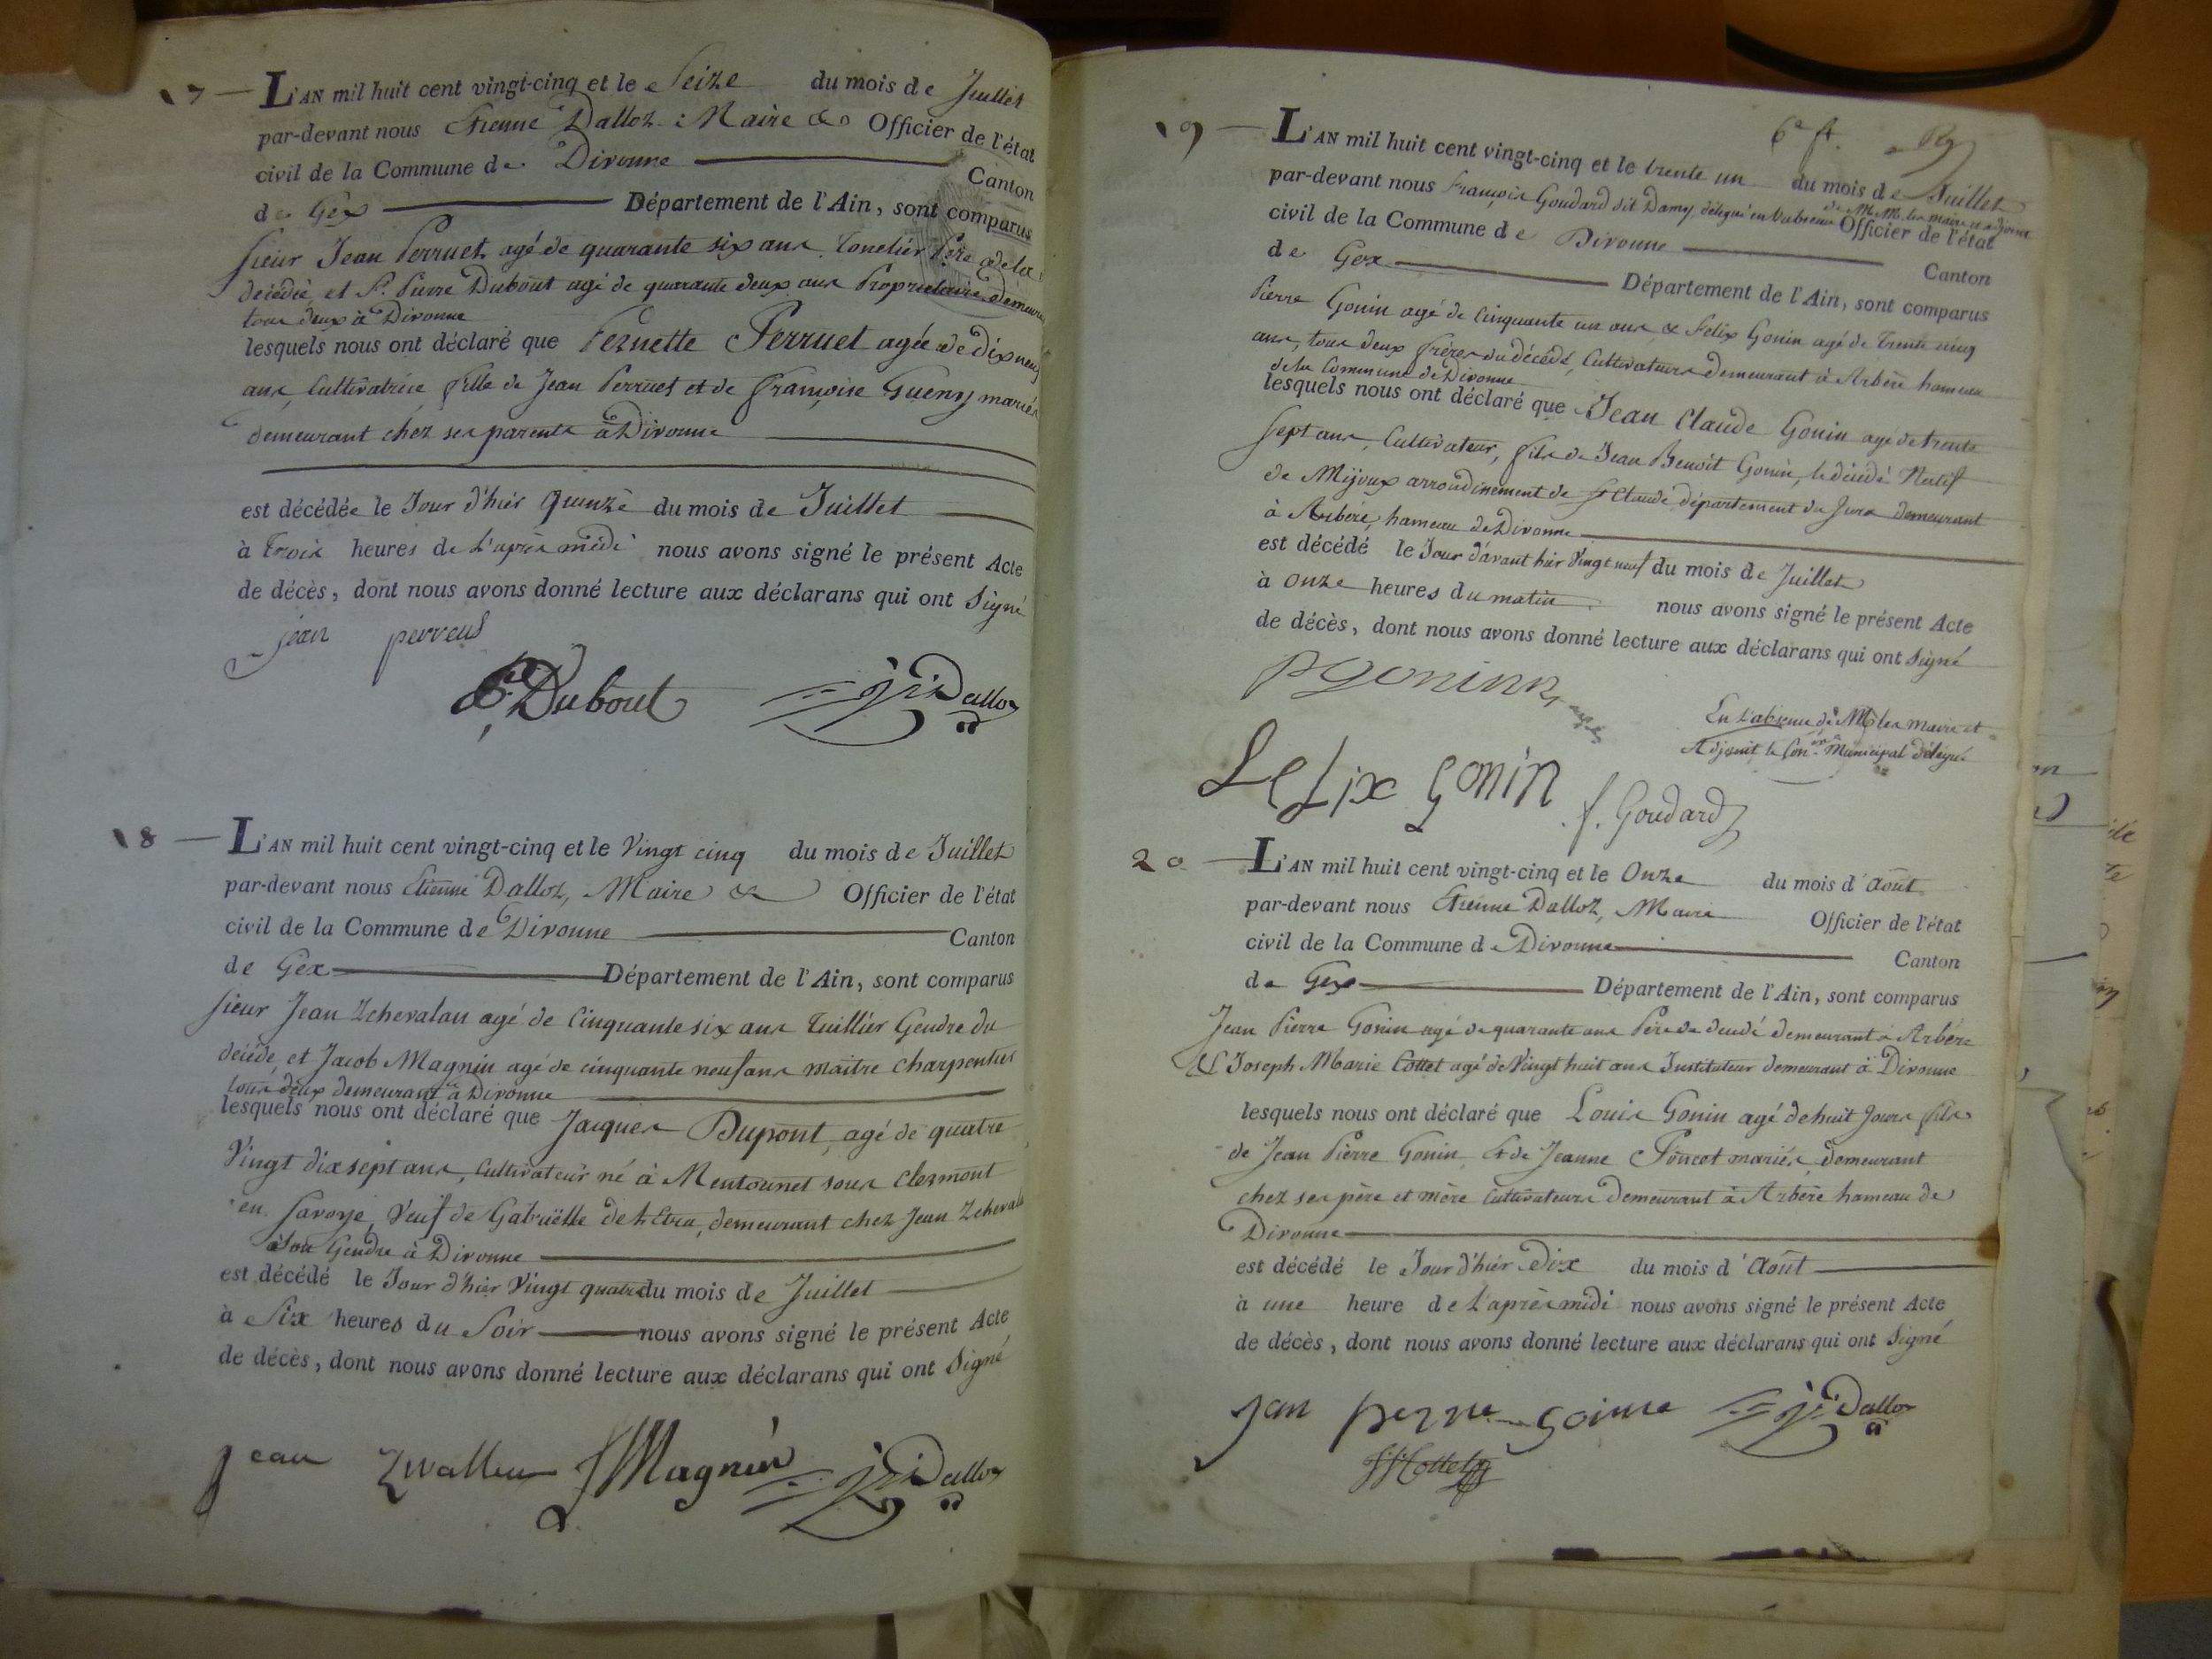 17 — L'AN mil huit cent vingt-cinq et le Seize du mois de Juillet
par-devant nous Etienne Dalloz Maire &c Officier de l'état
civil de la Commune de Divonne Canton
de Gex Département de l'Ain, sont comparus
Sieur Jean Perruet agé de quarante six ans Tonelier Père de la
décédée et Sr. Pierre Dubout agé de quarante deux ans Propriétaire demeurant
tous deux à Divonne
lesquels nous ont déclaré que Pernette Perruet agée de dix neuf
ans, Cultivatrice fille de Jean Perruet et de Françoise Gueny mariés
demeurant chez ses parents à Divonne
est décédée le Jour d'hier quinze du mois de Juillet
à trois heures de l'après midi nous avons signé le présent Acte
de décès, dont nous avons donné lecture aux déclarans qui ont Signé
jean perreut
Pre Dubout Dalloz
18 — L'AN mil huit cent vingt-cinq et le Vingt cinq du mois de Juillet
par-devant nous Etienne Dalloz, Maire & Officier de l'état
civil de la Commune de Divonne Canton
de Gex Département de l'Ain, sont comparus
Sieur Jean Zchevalan agé de Cinquante six ans Tuillier Gendre du
décédé, et Jacob Magnin agé de cinquante neuf ans maitre charpentier
tous deux demeurant à Divonne
lesquels nous ont déclaré que Jacques Dupont, agé de quatre
Vingt dix sept ans, Cultivateur né à Mentounet sous Clermont
en Savoye, Veuf de Gabrielle de L'Etra, demeurant chez Jean Zcheval
son Gendre à Divonne
est décédé le Jour d'hier Vingt quatre du mois de Juillet
à Six heures du Soir nous avons signé le présent Acte
de décès, dont nous avons donné lecture aux déclarans qui ont Signé
jean Zwallen JMagnin Dalloz
6e ft.
19 — L'AN mil huit cent vingt-cinq et le trente un du mois de Juillet
de M.M. les maire et adjoint
par-devant nous François Goudard dit Damy, délégué en l'absence Officier de l'état
civil de la Commune de Divonne Canton
de Gex Département de l'Ain, sont comparus
Pierre Gonin agé de Cinquante un ans & Felix Gonin agé de Trente cinq
ans, tous deux frères du décédé, Cultivateurs demeurant à Arbère hameau
de la Commune de Divonne
lesquels nous ont déclaré que Jean Claude Gonin agé de trente
sept ans, Cultivateur, fils de Jean Benoit Gonin, le décédé Natif
de Mijoux arrondissement de St Claude département du Jura demeurant
à Arbère, hameau de Divonne
est décédé le Jour d'avant hier Vingt neuf du mois de Juillet
à onze heures du matin nous avons signé le présent Acte
de décès, dont nous avons donné lecture aux déclarans qui ont Signé
P gonin
En l'absence de M les maire et
Adjoint le Coner Municipal délégué
FeLix gonin f. Goudard
20 — L'AN mil huit cent vingt-cinq et le Onze du mois d'Août
par-devant nous Etienne Dalloz, Maire Officier de l'état
civil de la Commune de Divonne Canton
de Gex Département de l'Ain, sont comparus
Jean Pierre Gonin agé de quarante ans Père du décédé demeurant à Arbère
& Joseph Marie Cottet agé de Vingt huit ans Instituteur demeurant à Divonne
lesquels nous ont déclaré que Louis Gonin agé de huit Jours fils
de Jean Pierre Gonin & de Jeanne Poncet mariés, demeurant
chez ses père et mère Cultivateurs demeurant à Arbère hameau de
Divonne
est décédé le Jour d'hier Dix du mois d'Août
à une heure de l'après midi nous avons signé le présent Acte
de décès, dont nous avons donné lecture aux déclarans qui ont Signé
Dalloz
Cottet